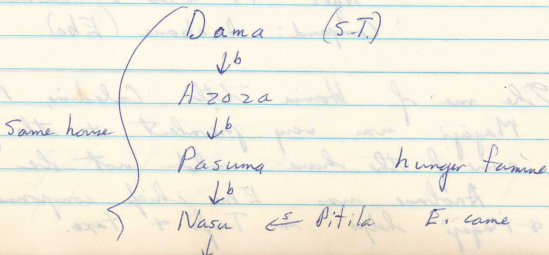 Dama (S-T.)
↓b
Azoza
↓b
Same house
Pasuma hunger famine
↓b
Nasu ←s Pitila E. came
↓